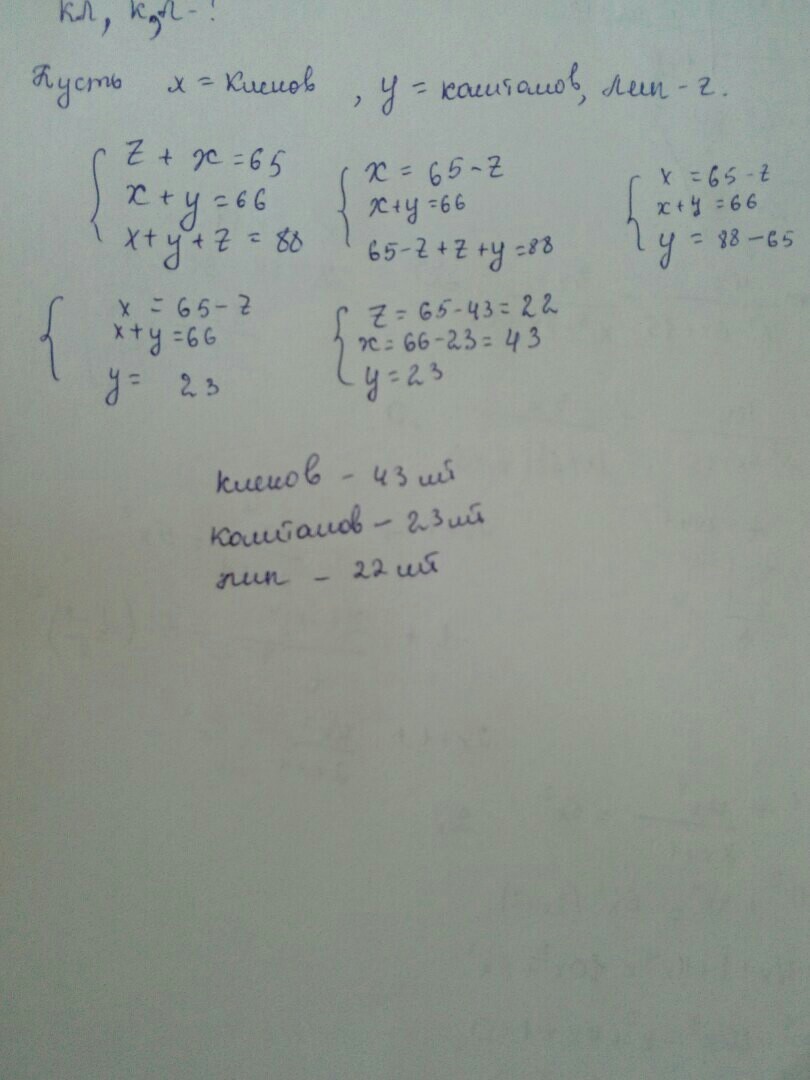 кл, к, л - ?
Пусть x = кленов, y = каштанов, лип - z.
z + x = 65
x + y = 66
x + y + z = 88
x = 65 - z
x + y = 66
65 - z + z + y = 88
x = 65 - z
x + y = 66
y = 88 - 65
x = 65 - z
x + y = 66
y = 23
z = 65 - 43 = 22
x = 66 - 23 = 43
y = 23
кленов - 43 шт
каштанов - 23 шт
лип - 22 шт